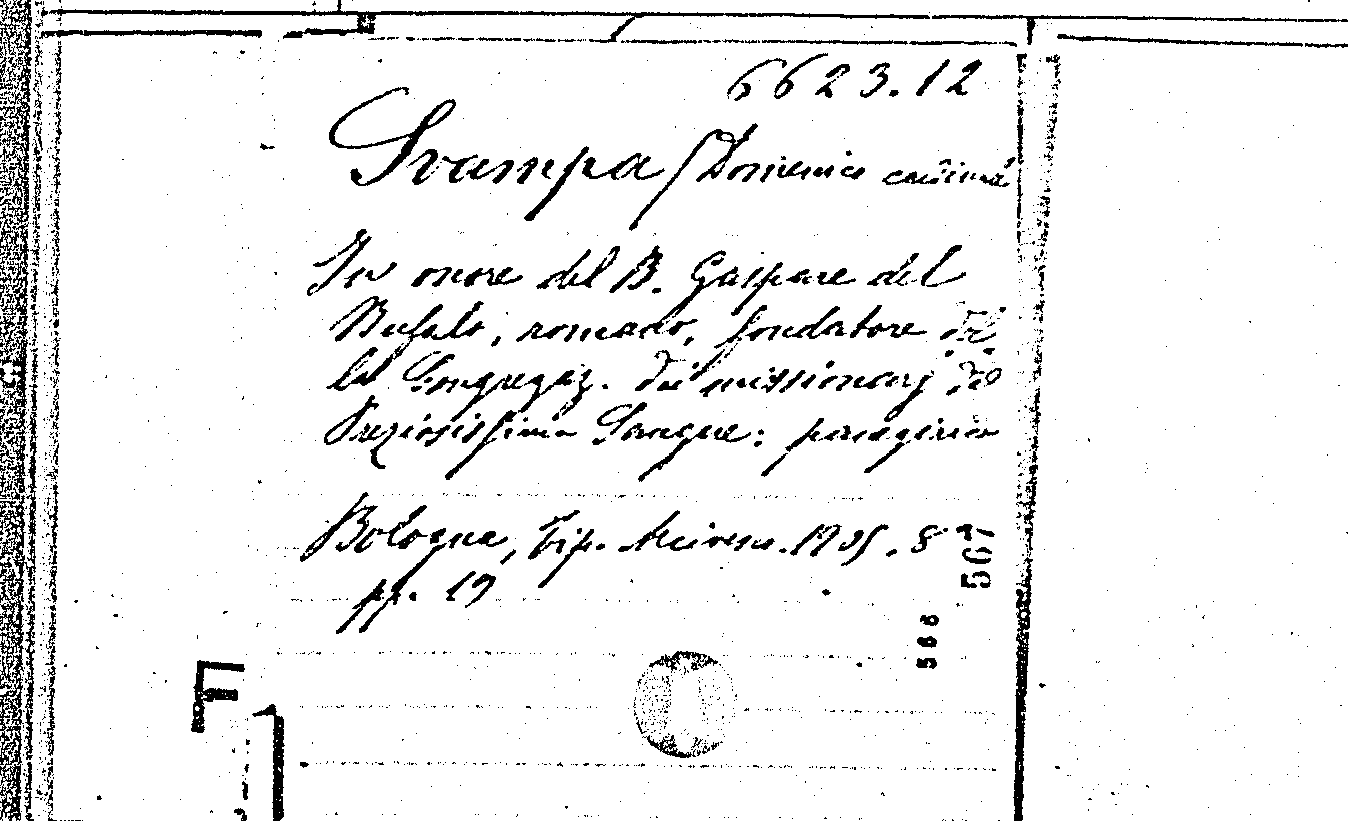 6623.12
Svampa / Domenico cardinal
In onore del B. Gaspare del
Bufalo, romano, fondatore del
la Congregaz. dei missionarj del
Preziosissimo Sangue: panegirico
Bologna, Tip. Arcivesc. 1905. 8°
pp. 19
567
566
F